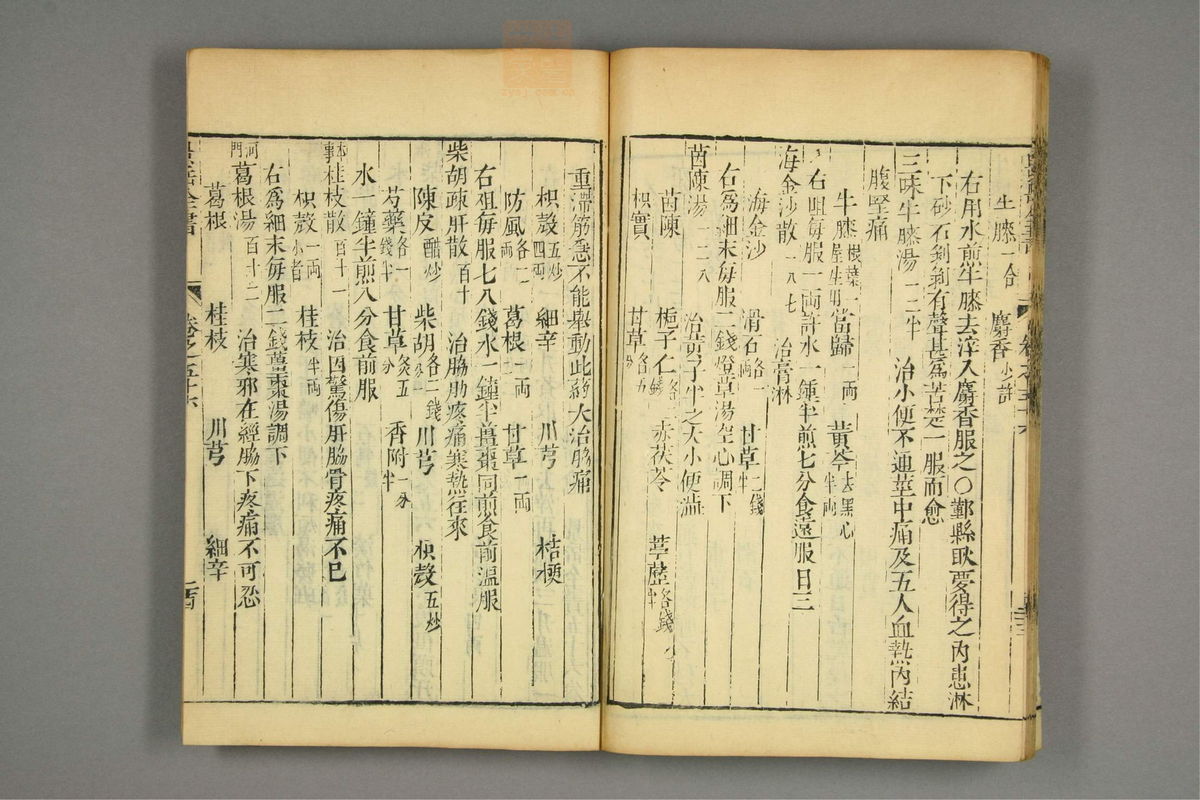 生膝一合 麝香少許
右用水煎牛膝去滓入麝香服之○鄞縣耿夢得之內患淋
下砂石剝剝有聲甚爲苦楚一服而愈
三味牛膝湯 治小便不通莖中痛及五人血熱內結
腹堅痛
牛膝根葉一 當歸一兩 黃芩去黑心半兩
右㕮咀每服一兩許水一鍾半煎七分食遠服日三
海金沙散一八七 治膏淋
海金沙 滑石各一兩 甘草二錢半
右爲細末每服二錢燈草湯空心調下
茵陳湯一二八
茵陳 梔子仁 赤茯苓 葶藶
枳實 甘草各五分
重滯筋急不能舉動此藥大治脇痛
枳殼五炒四兩 細辛 川芎 桔梗
防風各一兩 葛根一兩 甘草一兩
右㕮每服七八錢水一鍾半薑棗同煎食前溫服
柴胡疎肝散百十 治脇肋疼痛寒熱往來
陳皮醋炒 柴胡各二錢 川芎 枳殼五炒
芍藥各一錢半 甘草炙五分 香附一分半
水一鍾半煎八分食前服
桂枝散百十一 治因驚傷肝脇骨疼痛不已
枳殼一兩小者 桂枝半兩
右爲細末每服二錢薑棗湯調下
河門葛根湯百十二 治寒邪在經脇下疼痛不可忍
葛根 桂枝 川芎 細辛